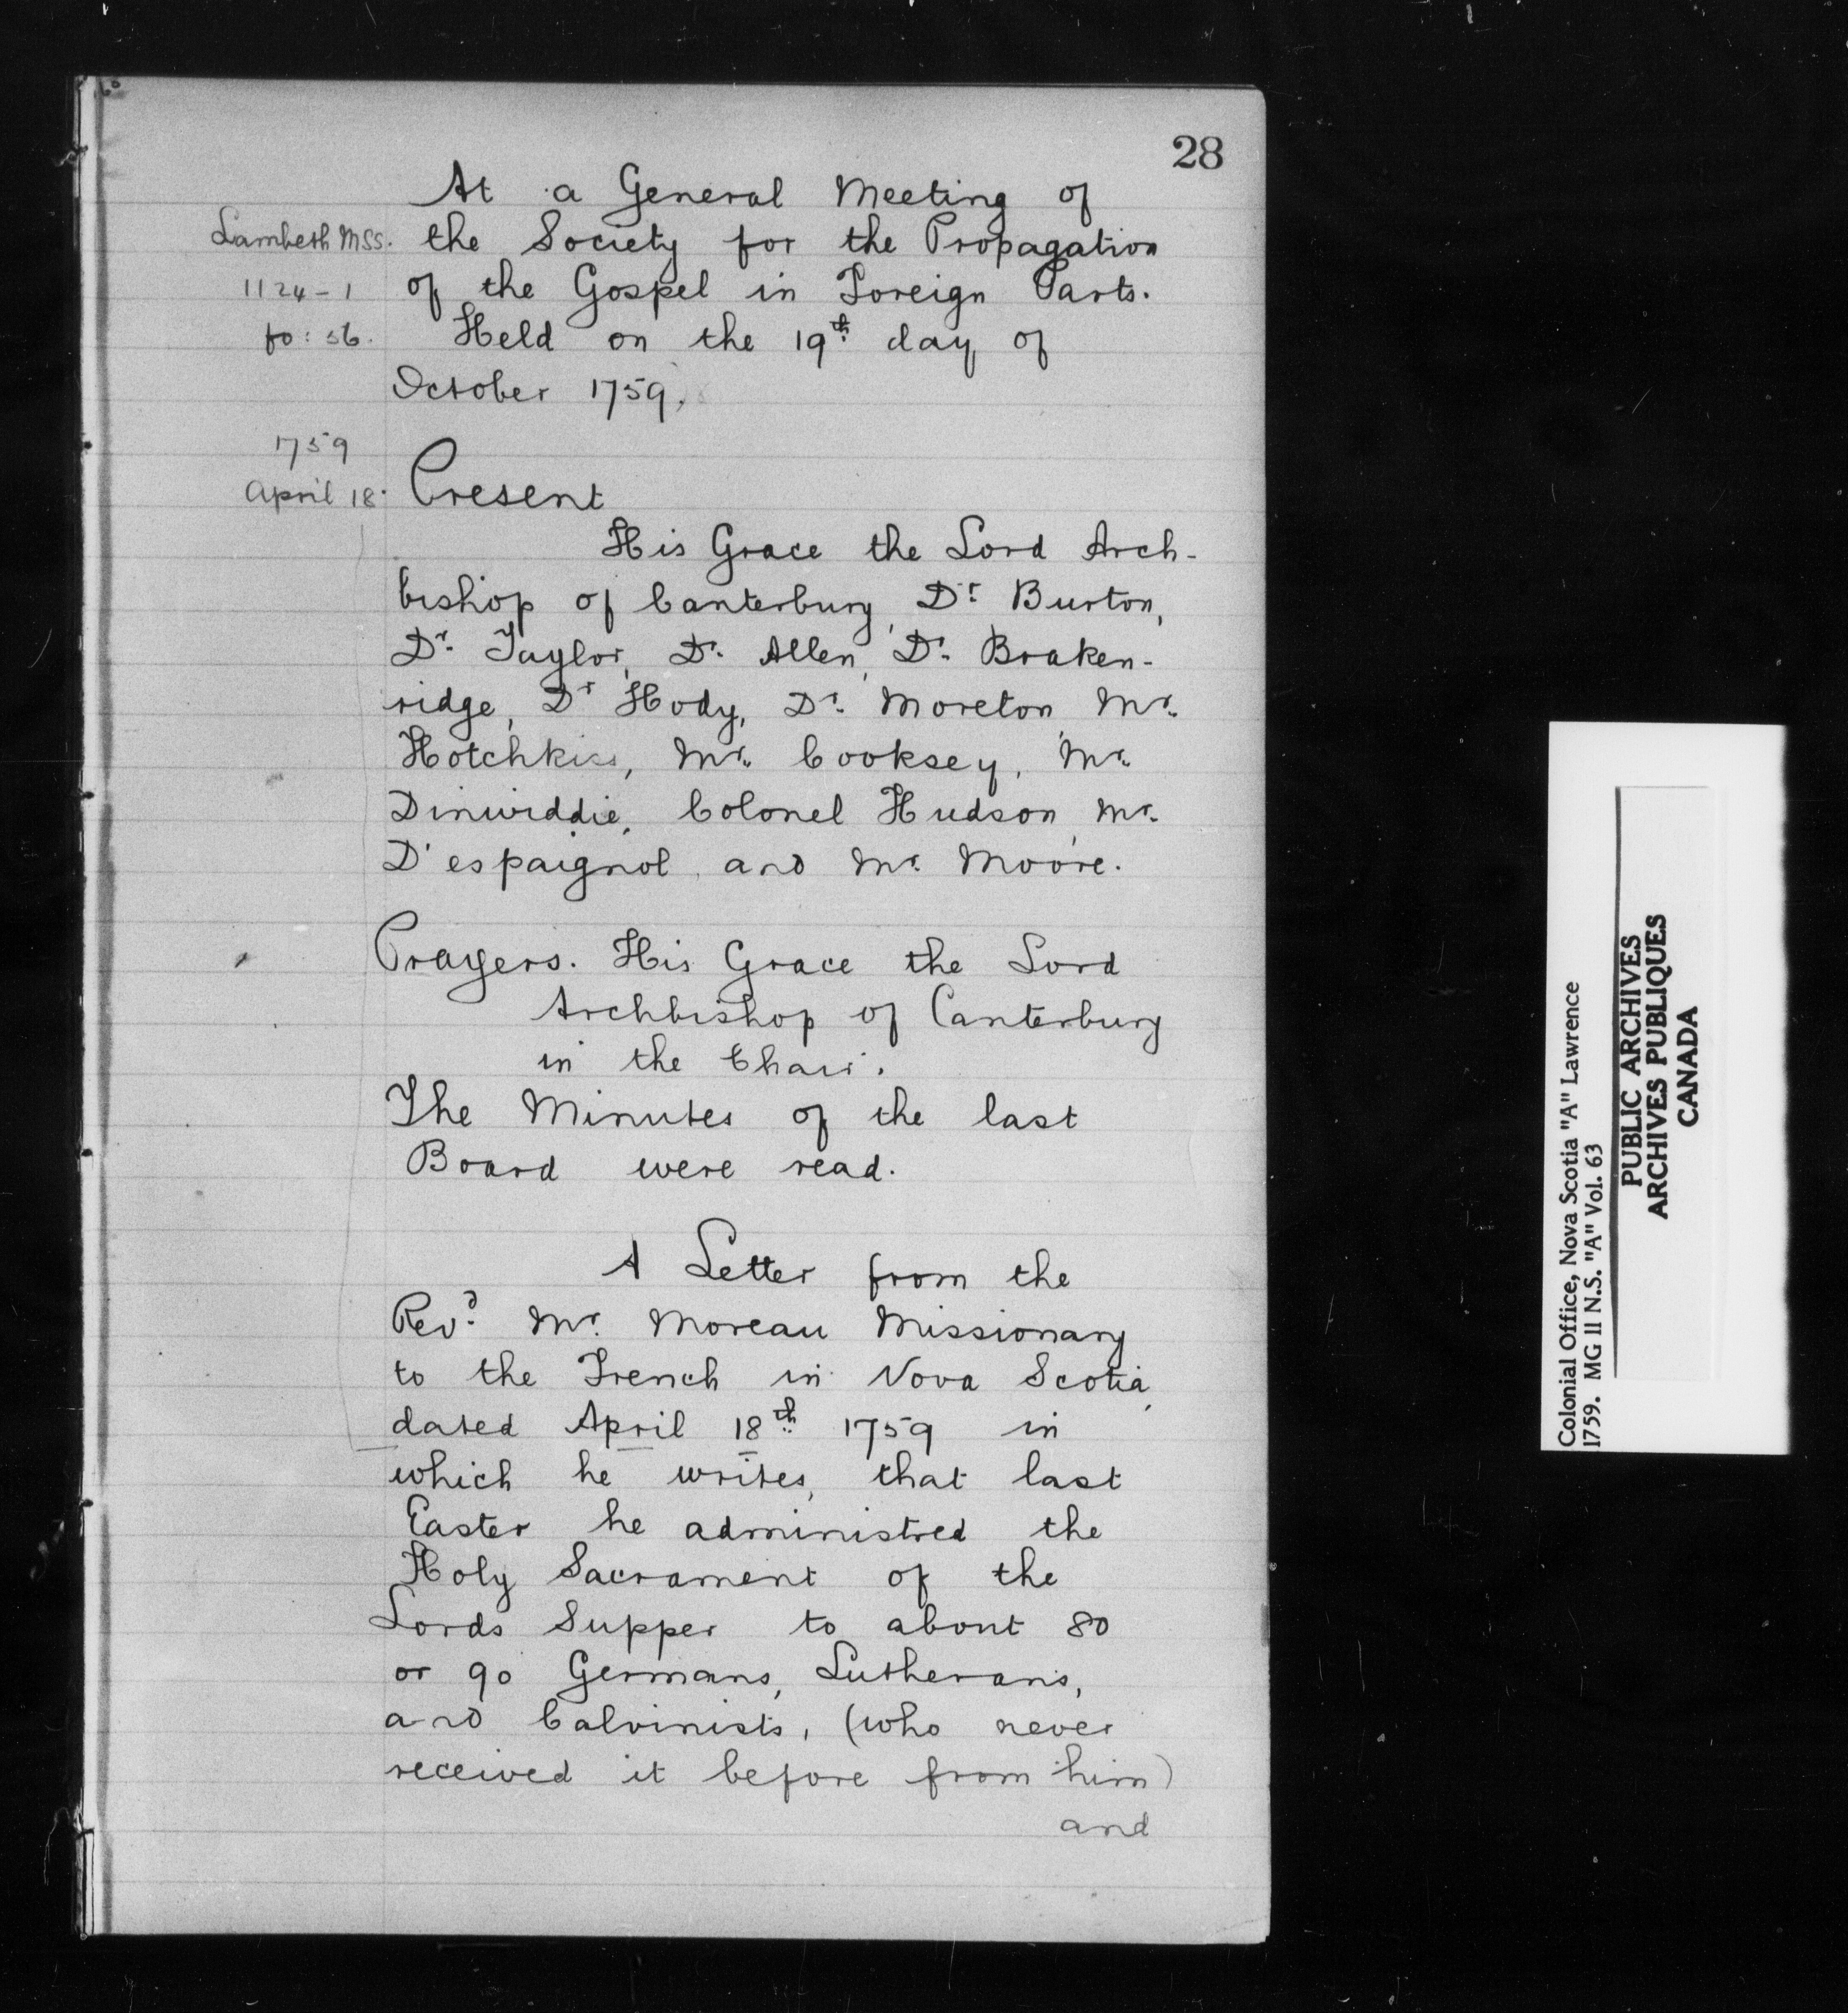 28
At a General Meeting of
Lambeth MSS. the Society for the Propagation
1124-1 of the Gospel in Foreign Parts.
fo: 56. Held on the 19th day of
October 1759.
1759
April 18. Present
His Grace the Lord Arch-
bishop of Canterbury, Dr. Burton,
Dr. Taylor, Dr. Allen, Dr. Braken-
ridge, Dr Hody, Dr. Moreton, Mr.
Hotchkiss, Mr. Cooksey, Mr.
Dinwiddie, Colonel Hudson, Mr.
D'espaignol, and Mr. Moore.
Prayers. His Grace the Lord
Archbishop of Canterbury
in the Chair.
The Minutes of the last
Board were read.
A Letter from the
Revd. Mr. Moreau Missionary
to the French in Nova Scotia,
dated April 18th 1759 in
which he writes, that last
Easter he administred the
Holy Sacrament of the
Lords Supper to about 80
or 90 Germans, Lutherans,
and Calvinists, (who never
received it before from him)
and
Colonial Office, Nova Scotia "A" Lawrence
1759. MG 11 N.S. "A" Vol. 63
PUBLIC ARCHIVES
ARCHIVES PUBLIQUES
CANADA